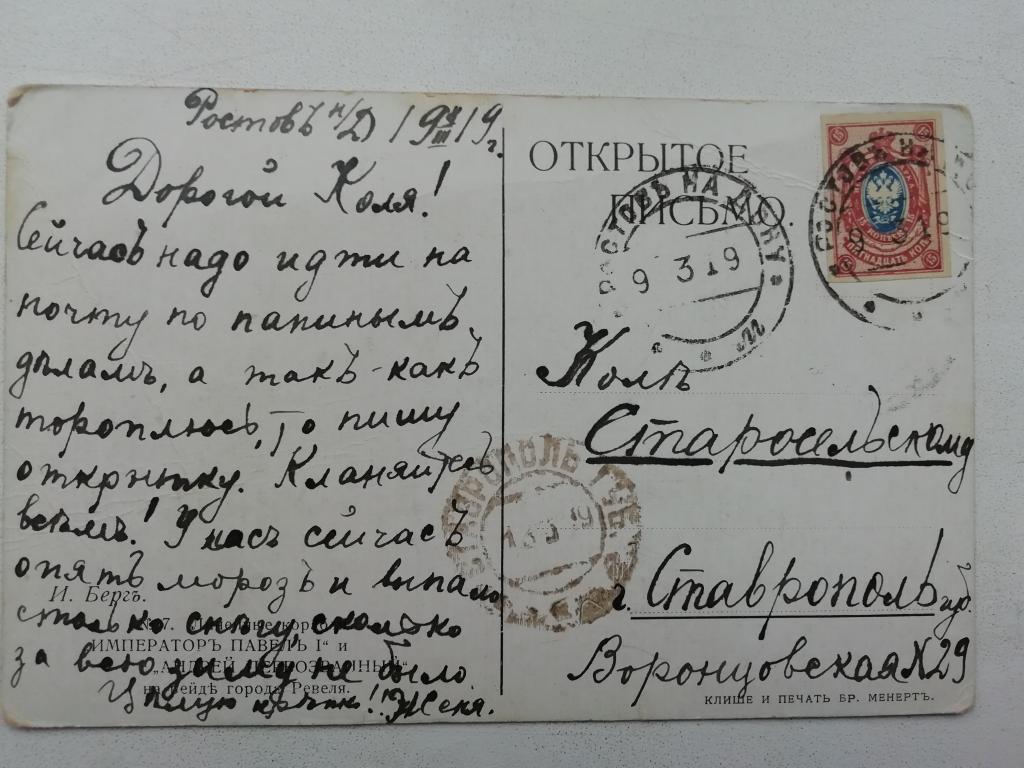 Ростовъ н/Д 19 9/III 19 г.
Дорогой Коля!
Сейчасъ надо идти на
почту по папинымъ
дѣламъ, а такъ-какъ
тороплюсь, то пишу
открытку. Кланяйтесь
всѣмъ! У насъ сейчасъ
опять морозъ и выпало
столько снѣгу, сколько
за всю зиму не было
Цѣлую крѣпко!! Женя.
И. Бергъ.
№ 7. Линейные кораб
ИМПЕРАТОРЪ ПАВЕЛЪ I" и
„АНДРЕЙ ПЕРВОЗВАННЫЙ"
на рейдѣ города Ревеля.
ОТКРЫТОЕ
ПИСЬМО.
РОСТОВЪ НА ДОНУ
9 3 19
РОСТОВЪ НА
9 3 19
15
ПЯТНАДЦАТЬ КОП.
Колѣ
Старосельскому
г. Ставрополь губ.
Воронцовская № 29
СТАВРОПОЛЬ ГУБ.
КЛИШЕ И ПЕЧАТЬ БР. МЕНЕРТЪ.